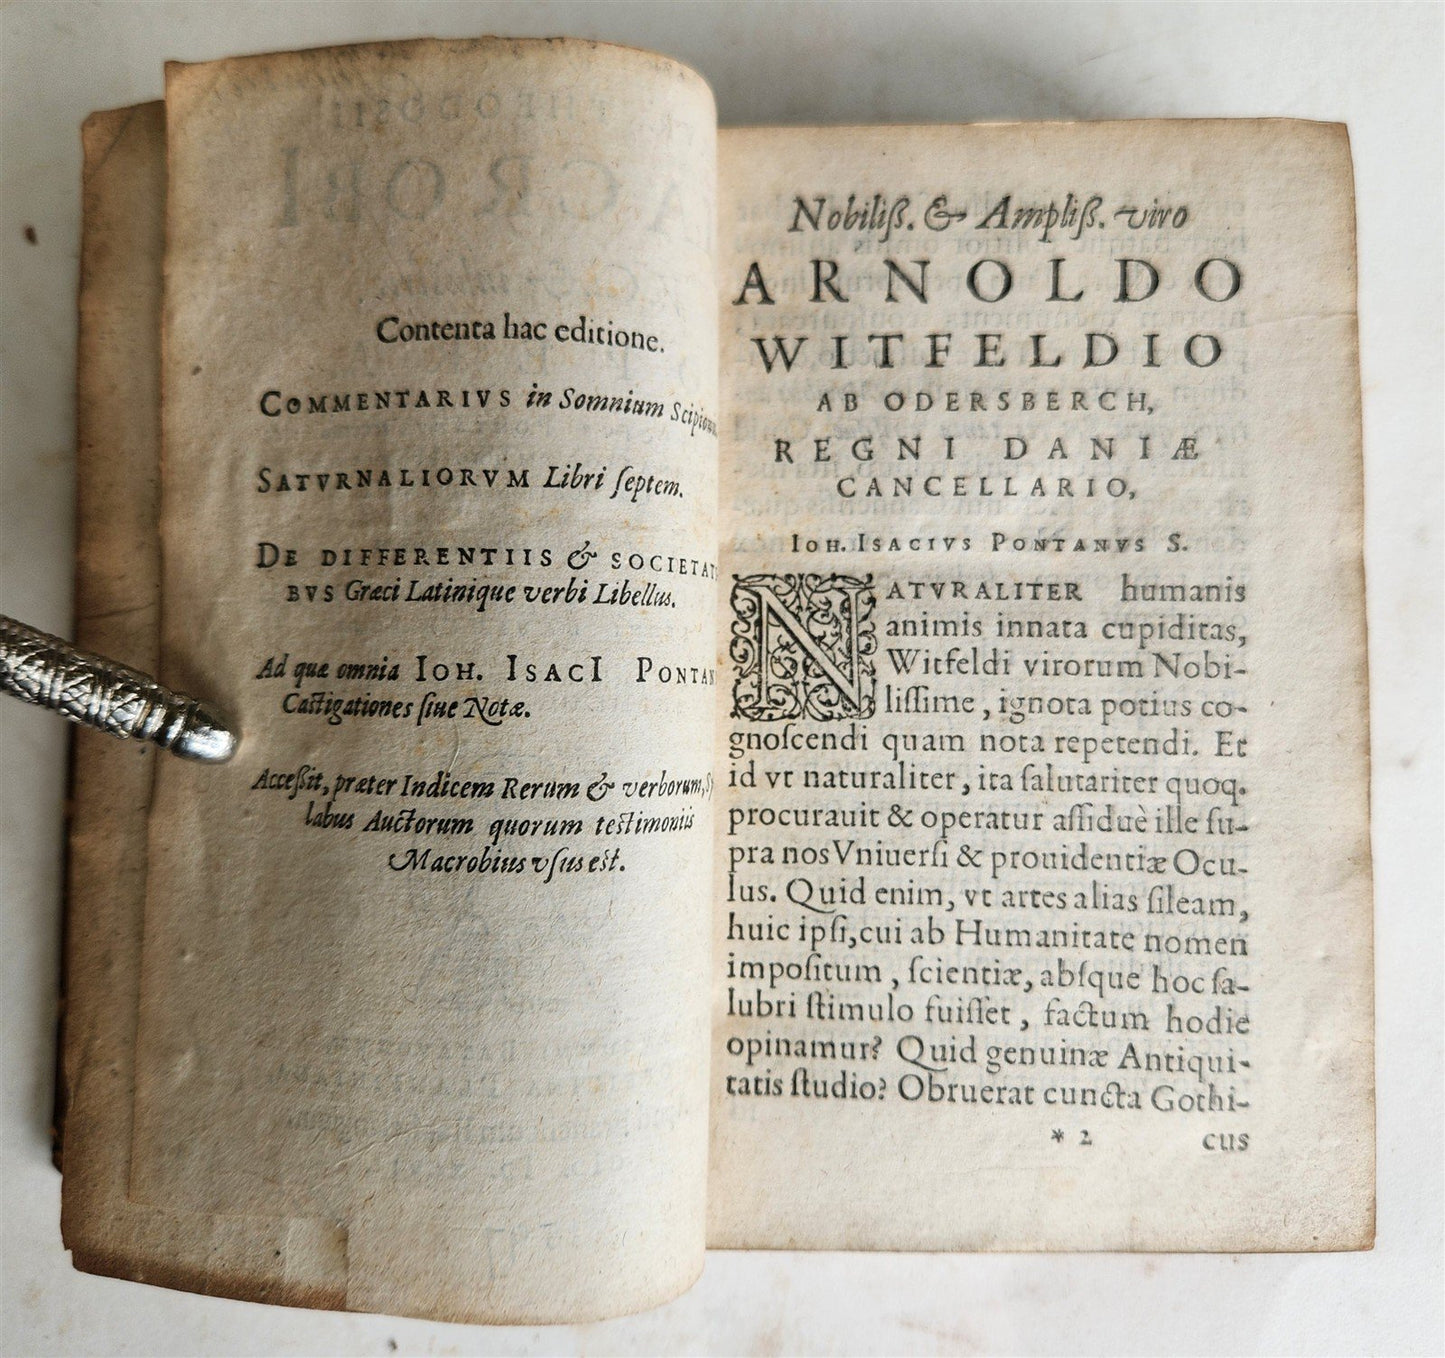 Contenta hac editione.
COMMENTARIVS in Somnium Scipion
SATVRNALIORVM Libri ſeptem.
DE DIFFERENTIIS & SOCIETAT
BVS Græci Latinique verbi Libellus.
Ad quæ omnia IOH. ISACI PONTAN
Caſtigationes ſiue Notæ.
Acceßit, præter Indicem Rerum & verborum, Sy
labus Auctorum quorum teſtimoniis
Macrobius vſus eſt.
Nobiliß. & Ampliß. viro
ARNOLDO
WITFELDIO
AB ODERSBERCH,
REGNI DANIÆ
CANCELLARIO,
IOH. ISACIVS PONTANVS S.
NATVRALITER humanis
animis innata cupiditas,
Witfeldi virorum Nobi-
liſſime, ignota potius co-
gnoſcendi quam nota repetendi. Et
id vt naturaliter, ita ſalutariter quoq.
procurauit & operatur aſſiduè ille ſu-
pra nos Vniuerſi & prouidentiæ Ocu-
lus. Quid enim, vt artes alias ſileam,
huic ipſi, cui ab Humanitate nomen
impoſitum, ſcientiæ, abſque hoc ſa-
lubri ſtimulo fuiſſet, factum hodie
opinamur? Quid genuinæ Antiqui-
tatis ſtudio? Obruerat cuncta Gothi-
* 2 cus